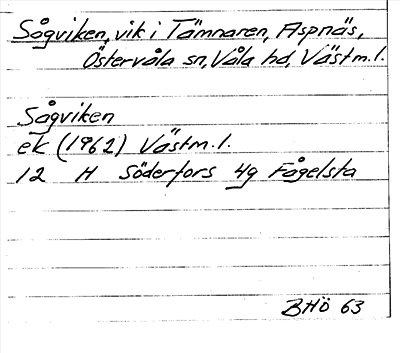 Sågviken, vik i Tämnaren, Aspnäs,
Östervåla sn, Våla hd, Västm.l.
Sågviken
ek (1962) Västm.l.
12 H Söderfors 4g Fågelsta
BHÖ 63